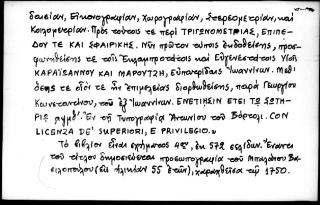 δαισίαν, Εἰκονογραφίαν, Χωρογραφίαν, Στερεομετρίαν, καὶ
Κοιλομετρίαν. Πρὸς τούτοις τε περὶ ΤΡΙΓΩΝΟΜΕΤΡΙΑΣ, ΕΠΙΠΕ-
ΔΟΥ ΤΕ ΚΑΙ ΣΦΑΙΡΙΚΗΣ. Νῦν πρῶτον τύποις ἐκδοθεῖσης, προσ-
φωνηθεῖσης τε τοῖς Ἐντιμοτάτοις καὶ Εὐγενεστάτοις Υἱοῖς
ΚΑΡΑΪΩΑΝΝΟΥ ΚΑΙ ΜΑΡΟΥΤΖΗ, Εὐπατρίδαις Ἰωαννίνων. Μεθ'
ὅσης τε οἷόν τε ἦν ἐπιμελείας διορθωθεῖσης, παρὰ Γεωργίου
Κωνσταντίνου, τοῦ ἐξ Ἰωαννίνων. ΕΝΕΤΙΗΣΙΝ ΕΤΕΙ ΤΩ ΣΩΤΗ-
ΡΙΩ ͵αψμθ'. Ἐν τῇ Τυπογραφίᾳ Ἀντωνίου τοῦ Βόρτολι. CON
LICENZA DE' SUPERIORI, E PRIVILEGIO.»
Τὸ βιβλίον εἶναι σχήματος 4ον, ἐκ 572 σελίδων. Ἔναντι
τοῦ τίτλου δημοσιεύεται προσωπογραφία τοῦ Μπαλάνου Βα-
σιλοπούλου (εἰς ἡλικίαν 55 ἐτῶν), χαραχθεῖσα τῷ 1750.